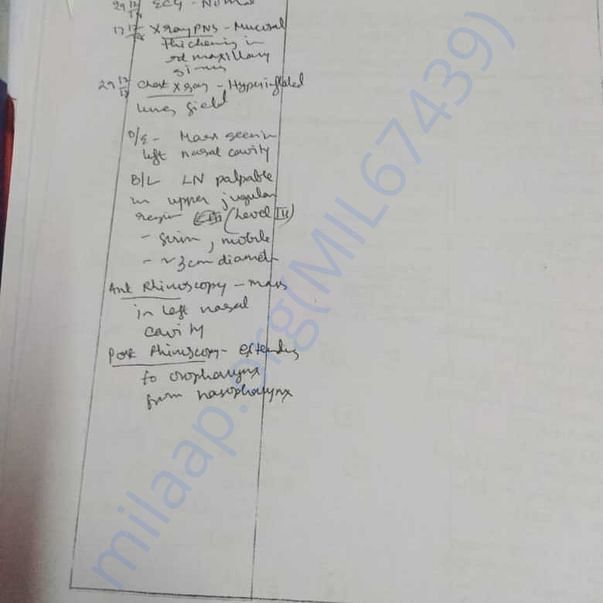 29/12/18 ECG - Normal
17/12/18 X ray PNS - Mucosal
thickening in
maxillary
sinus
29/12/18 Chest X ray - Hyperinflated
lung field
O/E - Mass seen in
left nasal cavity
B/L LN palpable
in upper jugular
region (Level III)
- firm, mobile
- ~ 3cm diameter
Ant Rhinoscopy - mass
in left nasal
cavity
Post Rhinoscopy - extending
to oropharynx
from nasopharynx
milaap.org(MIL67439)